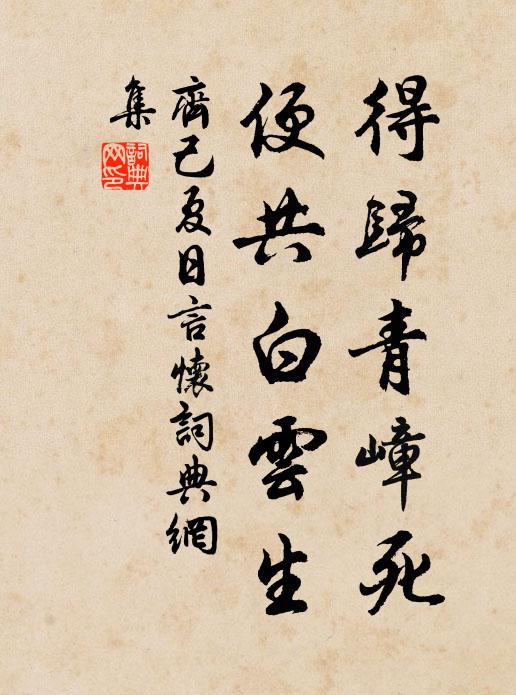 得歸青嶂死
便共白雲生
齊己夏日言懷詞典網
集
詞典
网印